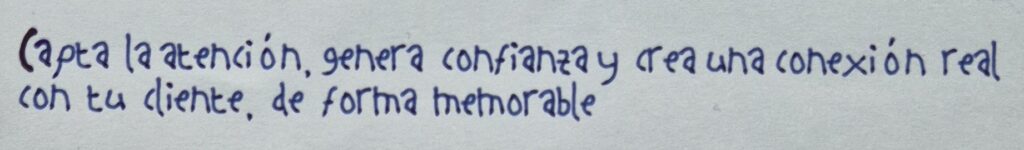 Capta la atención, genera confianza y crea una conexión real
con tu cliente, de forma memorable